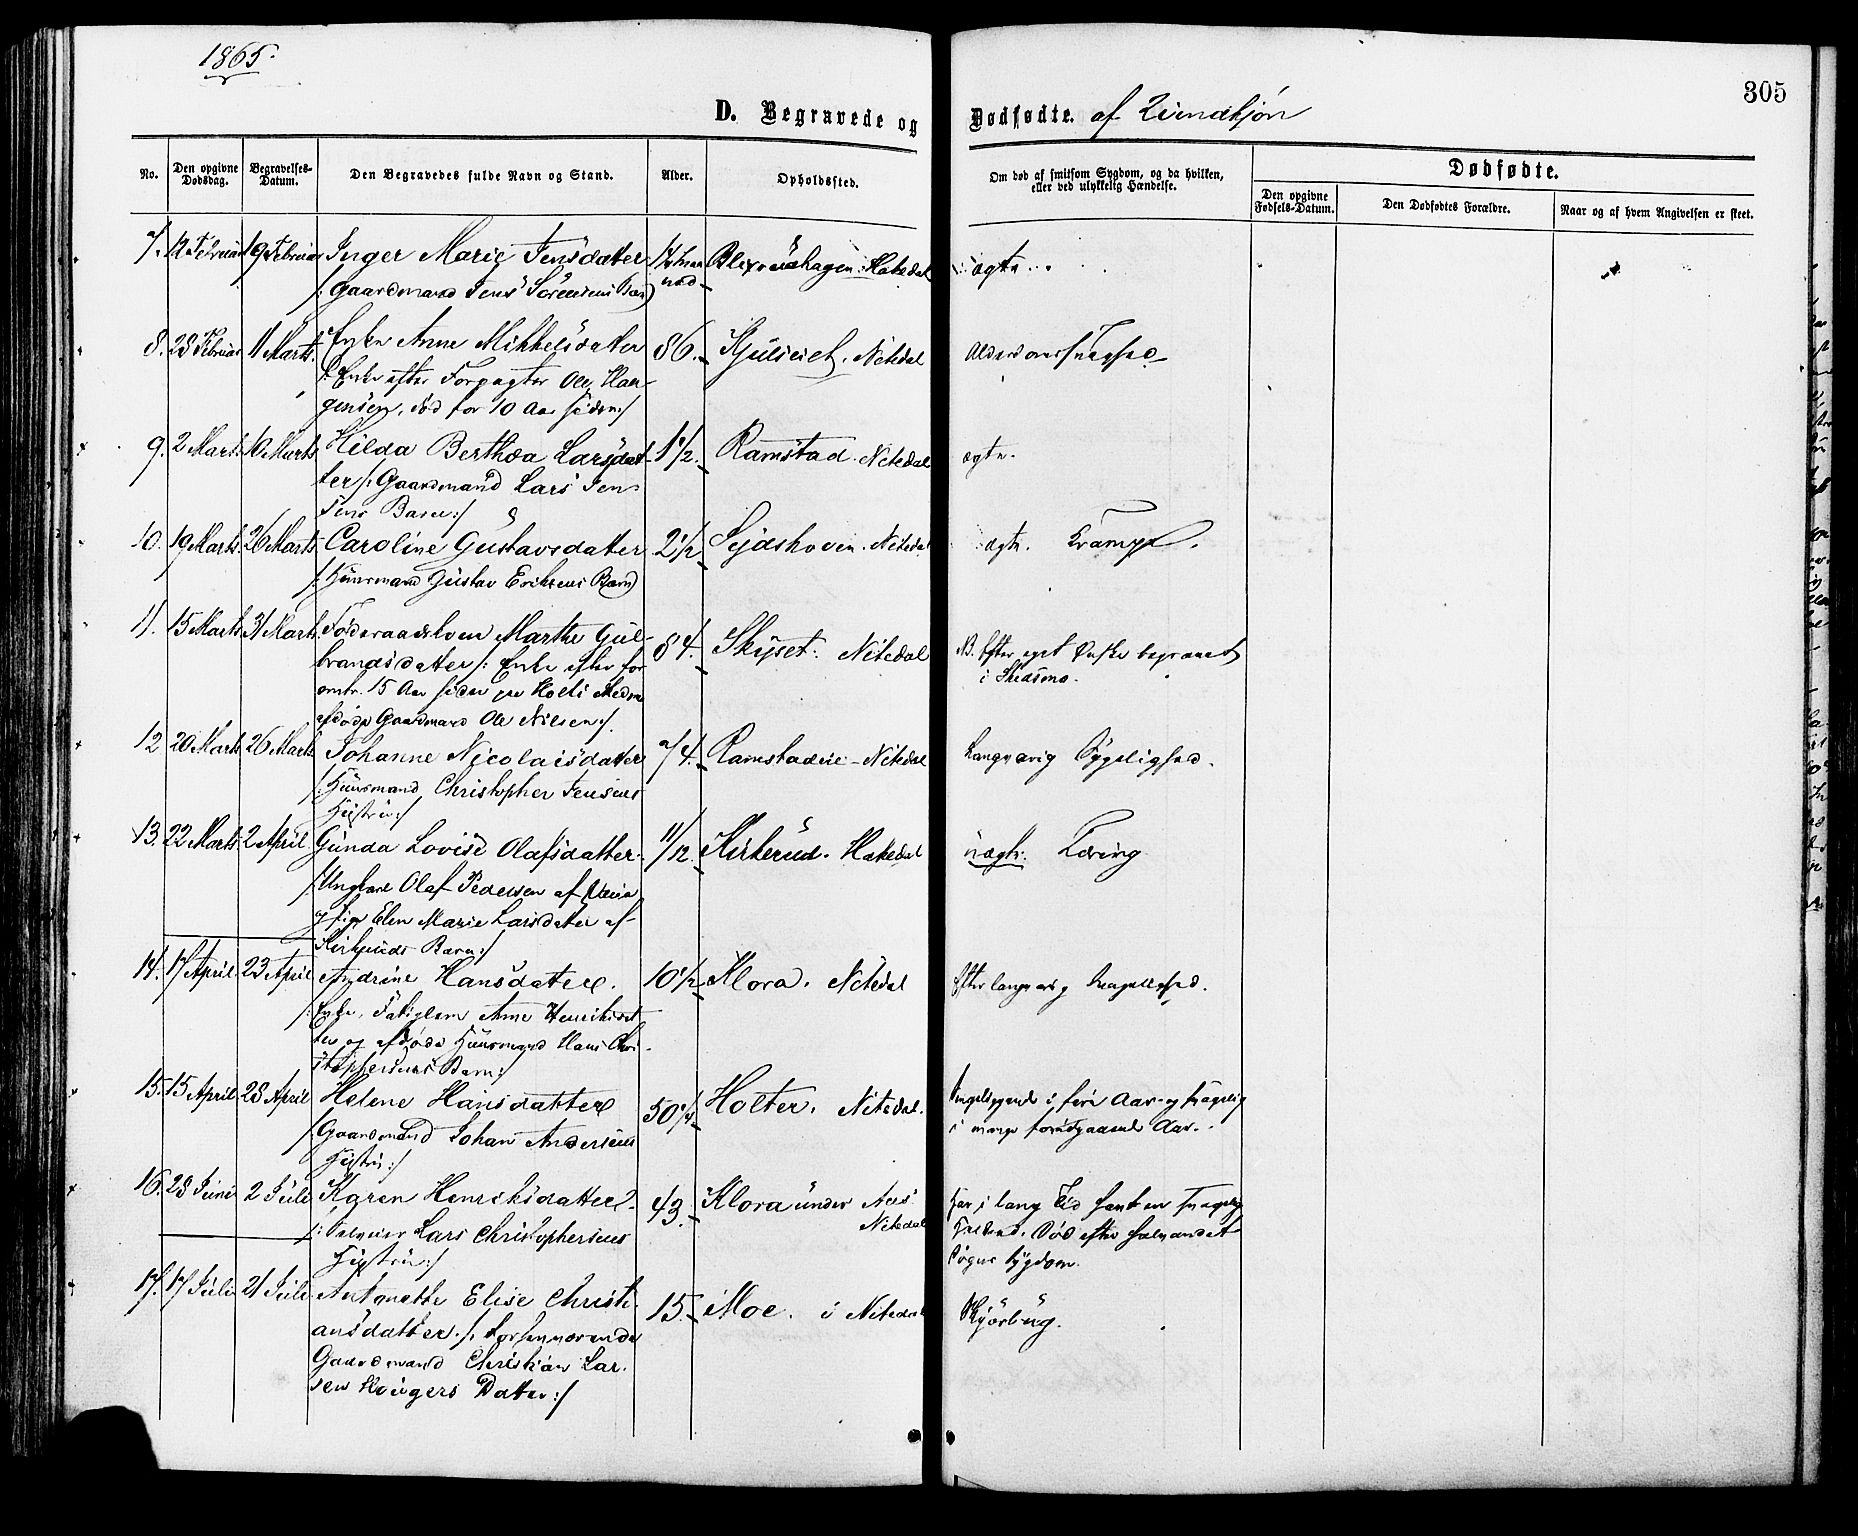 1865.
305
D. Begravede og Dødfødte. af Qvindkjøn
No.
Den opgivne Dødsdag.
Begravelses-Datum.
Den Begravedes fulde Navn og Stand.
Alder.
Opholdssted.
Om død af smitsom Sygdom, og da hvilken,
eller ved ulykkelig Hændelse.
Dødfødte.
Den opgivne Fødsels-Datum.
Den Dødfødtes Forældre.
Naar og af hvem Angivelsen er skeet.
7. 12 Februar 19 Februar Inger Marie Jensdatter Hakedal ægte.
/: Gaardmand Jens Sørensens Barn
8. 28 Februar 11 Marts. Enke Anne Mikkelsdatter 86. Kjulseiet. Nitedal Alderdomssvaghed
/: Enke efter Forpagter Ole Haa-
gensen, død for 10 Aar siden:/
9. 2 Marts. Marts. Hilda Berthea Larsdat- 1 1/2. Ramstad. Nitedal ægte.
ter /: Gaardmand Lars Jen-
sens Barn:/
10. 19 Marts. 26 Marts. Caroline Gustavsdatter 2 1/2 Nitedal ægte. Krampe.
/: Huusmand Gustav Eriksens Barn
11. 15 Marts 31 Marts. Føderaadskone Marthe Gul- 84. Skyset. Nitedal NB. Efter eget Ønske begravet
brandsdatter /: Enke efter for i Skedsmo.
omtr. 15 Aar siden paa Holt i
afdøde Gaardmand Ole Nilsen:/
12 20 Marts 26 Marts Johanne Nicolaisdatter 74. Ramstadeie - Nitedal Langvarig Sygelighed.
/: Huusmand Christopher Jensens
Hustru:/
13. 22 Marts 2 April. Gunda Lovise Olafsdatter. 11/12. Kirkerud. Hakedal uægte. Tæring
/: Ungkarl Olaf Pedersen af
Pige Elen Marie Larsdatter af
Kirkeruds Barn:/
14. 17 April. 23 April Andrine Hansdatter. 10 1/2 Klora. Nitedal Efter langvarig Svagelighed.
/: Enke, Fattiglem Anne Henriksdat-
ter og afdøde Huusmand Hans Chri-
stophersens Barn:/
15. 15 April 23 April Helene Hansdatter 50 1/4 Holter. Nitedal. Sengeliggende i fire Aar og svagelig
/: Gaardmand Johan Andersens i mange foregaaende Aar.
Hustru:/
16. 23 Juni 2 Juli Karen Henriksdatter. 43. Klora under Aas Nitedal Har i lang Tid havt en svagelig
/: Lars Christophersens Helbred. Død efter halvandet
Hustru:/ Døgns Sygdom.
17. 17 Juli 21 Juli Antonette Elise Christi- 15. Moe. i Nitedal Skjørbug.
ansdatter. /: forhenværende
Gaardmand Christian Lar-
sen Hougers Datter:/